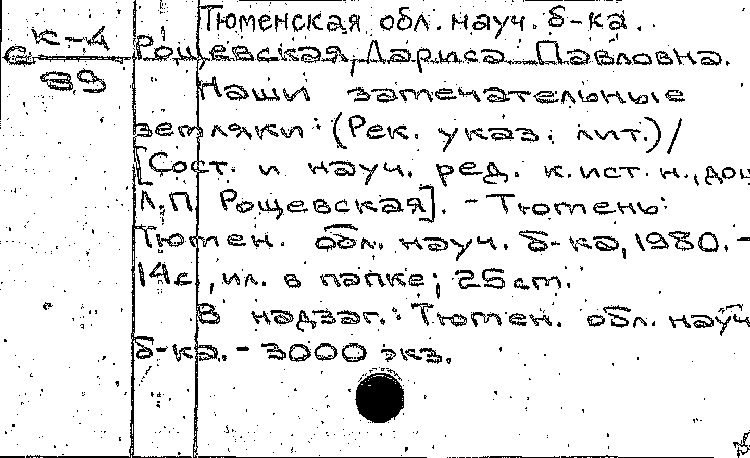 Тюменская обл. науч. б-ка.
К-4
с 89
Рощевская, Лариса Павловна.
Наши замечательные
земляки: (Рек. указ. лит.)/
[Сост. и науч. ред. к.ист.н., доц
Л.П. Рощевская]. - Тюмень:
Тюмен. обл. науч. б-ка, 1980. -
14с., ил. в папке; 25см.
В надзаг.: Тюмен. обл. науч
б-ка. - 3000 экз.